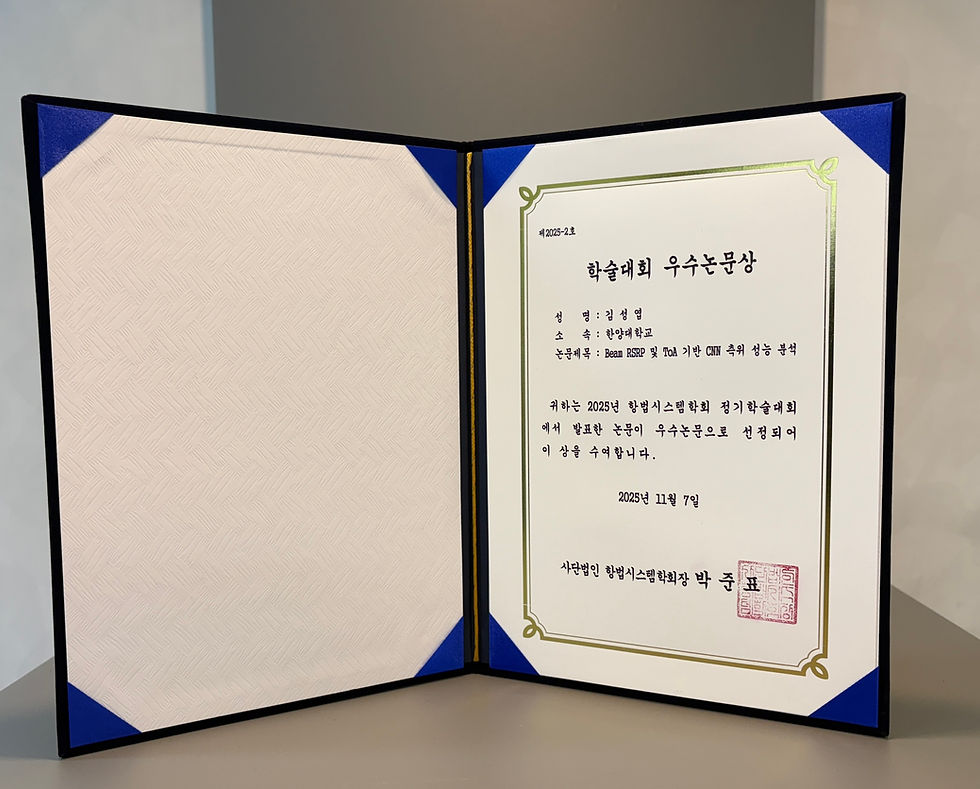 제2025-2호
학술대회 우수논문상
성 명 : 김성엽
소 속 : 한양대학교
논문제목 : Beam RSRP 및 ToA 기반 CNN 측위 성능 분석
귀하는 2025년 항법시스템학회 정기학술대회
에서 발표한 논문이 우수논문으로 선정되어
이 상을 수여합니다.
2025년 11월 7일
사단법인 항법시스템학회장 박준표